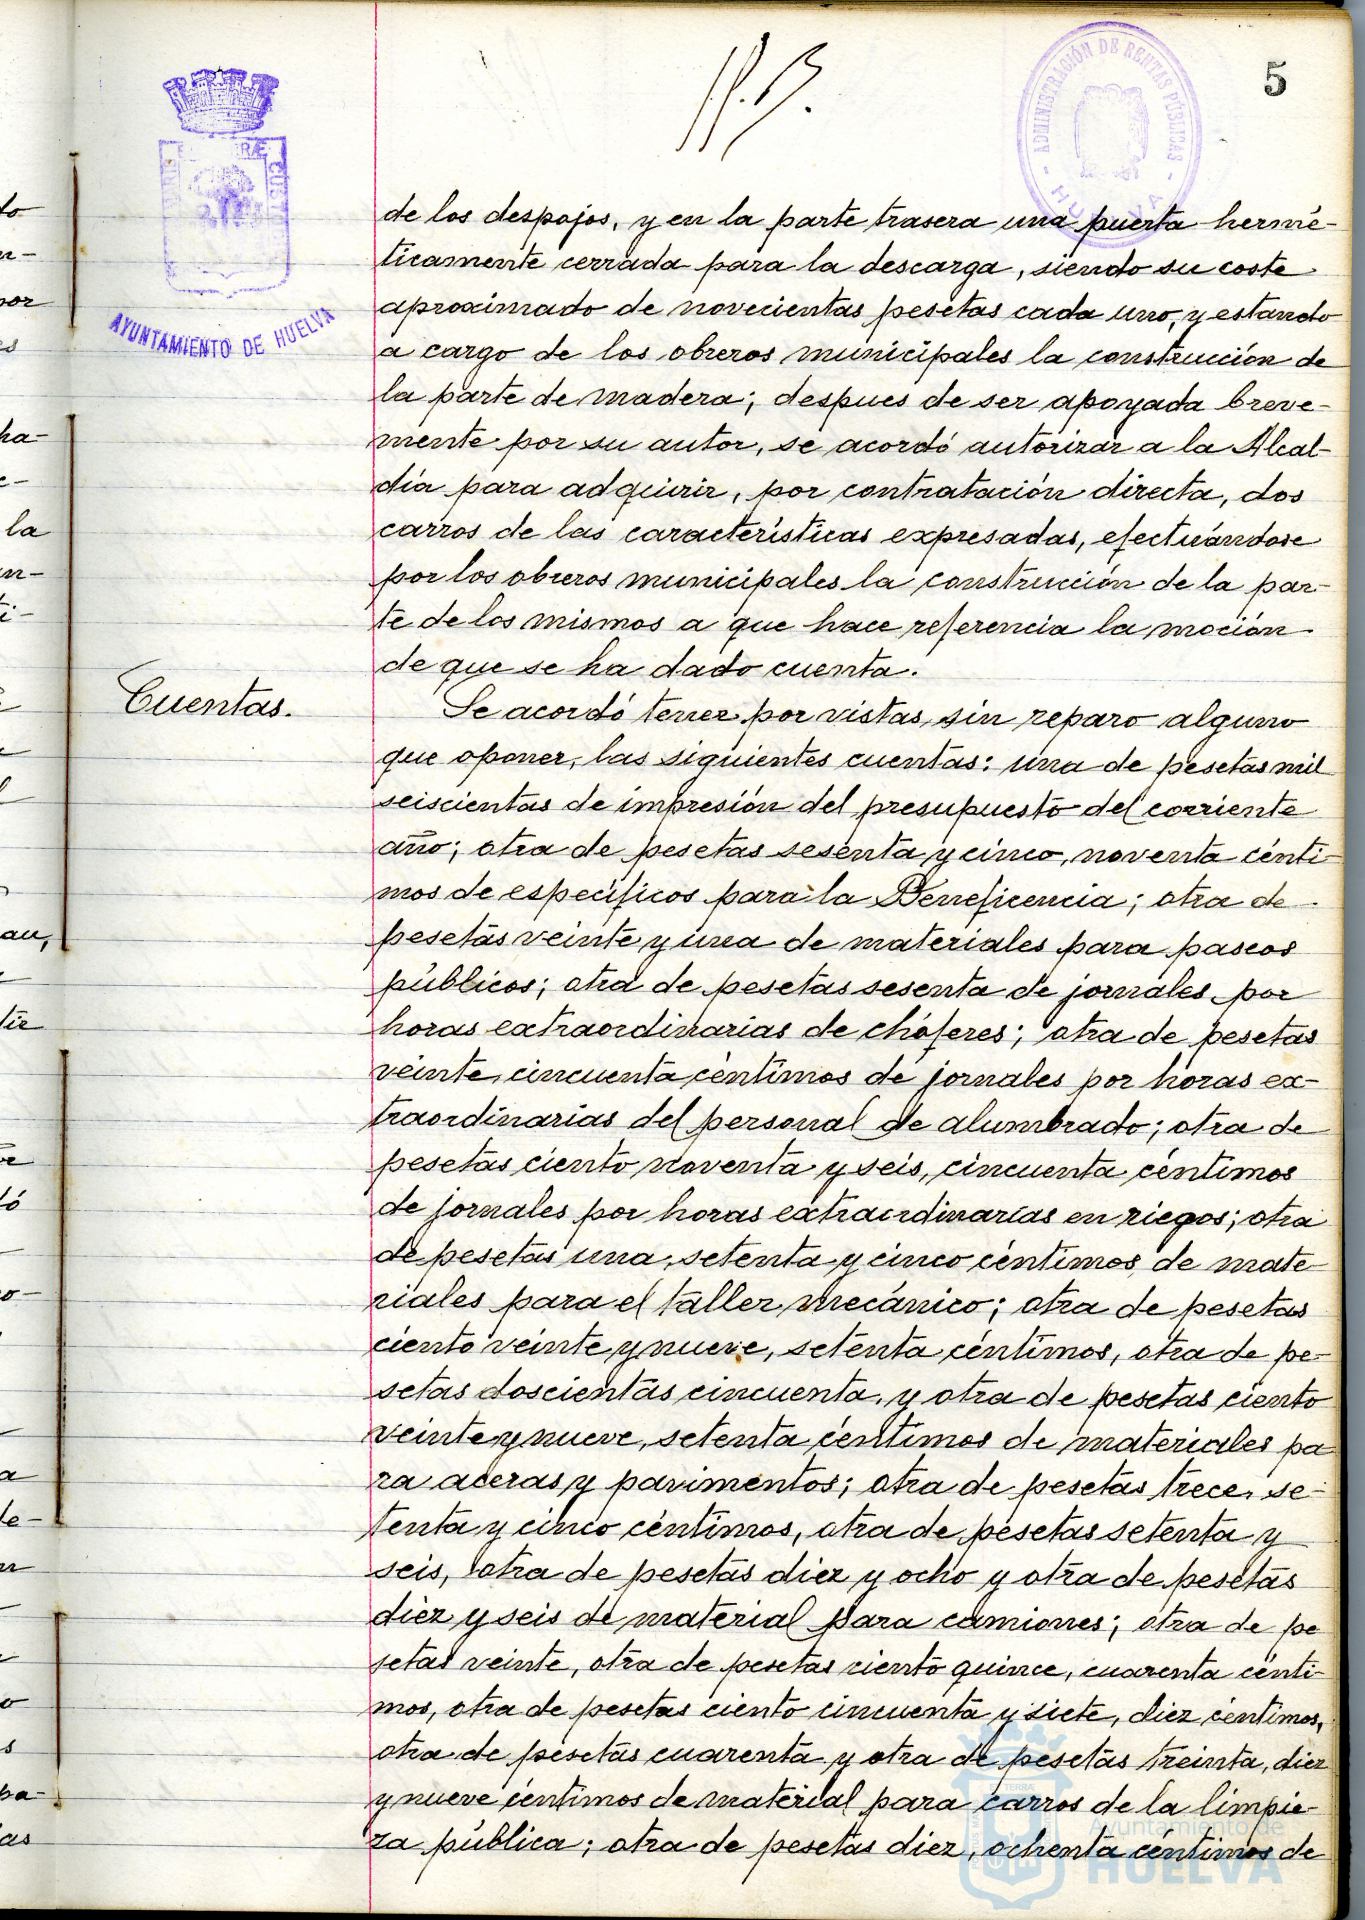 5
ADMINISTRACIÓN DE RENTAS PÚBLICAS
HUELVA
AYUNTAMIENTO DE HUELVA
de los despojos, y en la parte trasera una puerta hermé-
ticamente cerrada para la descarga, siendo su coste
aproximado de novecientas pesetas cada uno, y estando
a cargo de los obreros municipales la construcción de
la parte de madera; despues de ser apoyada breve-
mente por su autor, se acordó autorizar a la Alcal-
día para adquirir, por contratación directa, dos
carros de las características expresadas, efectuándose
por los obreros municipales la construcción de la par-
te de los mismos a que hace referencia la moción
de que se ha dado cuenta.
Cuentas.
Se acordó tener por vistas, sin reparo alguno
que oponer, las siguientes cuentas: una de pesetas mil
seiscientas de impresión del presupuesto del corriente
año; otra de pesetas sesenta y cinco, noventa cénti-
mos de específicos para la Beneficencia; otra de
pesetas veinte y una de materiales para paseos
públicos; otra de pesetas sesenta de jornales por
horas extraordinarias de chóferes; otra de pesetas
veinte, cincuenta céntimos de jornales por horas ex-
traordinarias del personal de alumbrado; otra de
pesetas ciento noventa y seis, cincuenta céntimos
de jornales por horas extraordinarias en riegos; otra
de pesetas una, setenta y cinco céntimos de mate-
riales para el taller mecánico; otra de pesetas
ciento veinte y nueve, setenta céntimos, otra de pe-
setas doscientas cincuenta, y otra de pesetas ciento
veinte y nueve, setenta céntimos de materiales pa
ra aceras y pavimentos; otra de pesetas trece, se-
tenta y cinco céntimos, otra de pesetas setenta y
seis, otra de pesetas diez y ocho y otra de pesetas
diez y seis de material para camiones; otra de pe
setas veinte, otra de pesetas ciento quince, cuarenta cénti-
mos, otra de pesetas ciento cincuenta y siete, diez céntimos,
otra de pesetas cuarenta y otra de pesetas treinta, diez
y nueve céntimos de material para carros de la limpie-
za pública; otra de pesetas diez, ochenta céntimos de
Ayuntamiento de
HUELVA